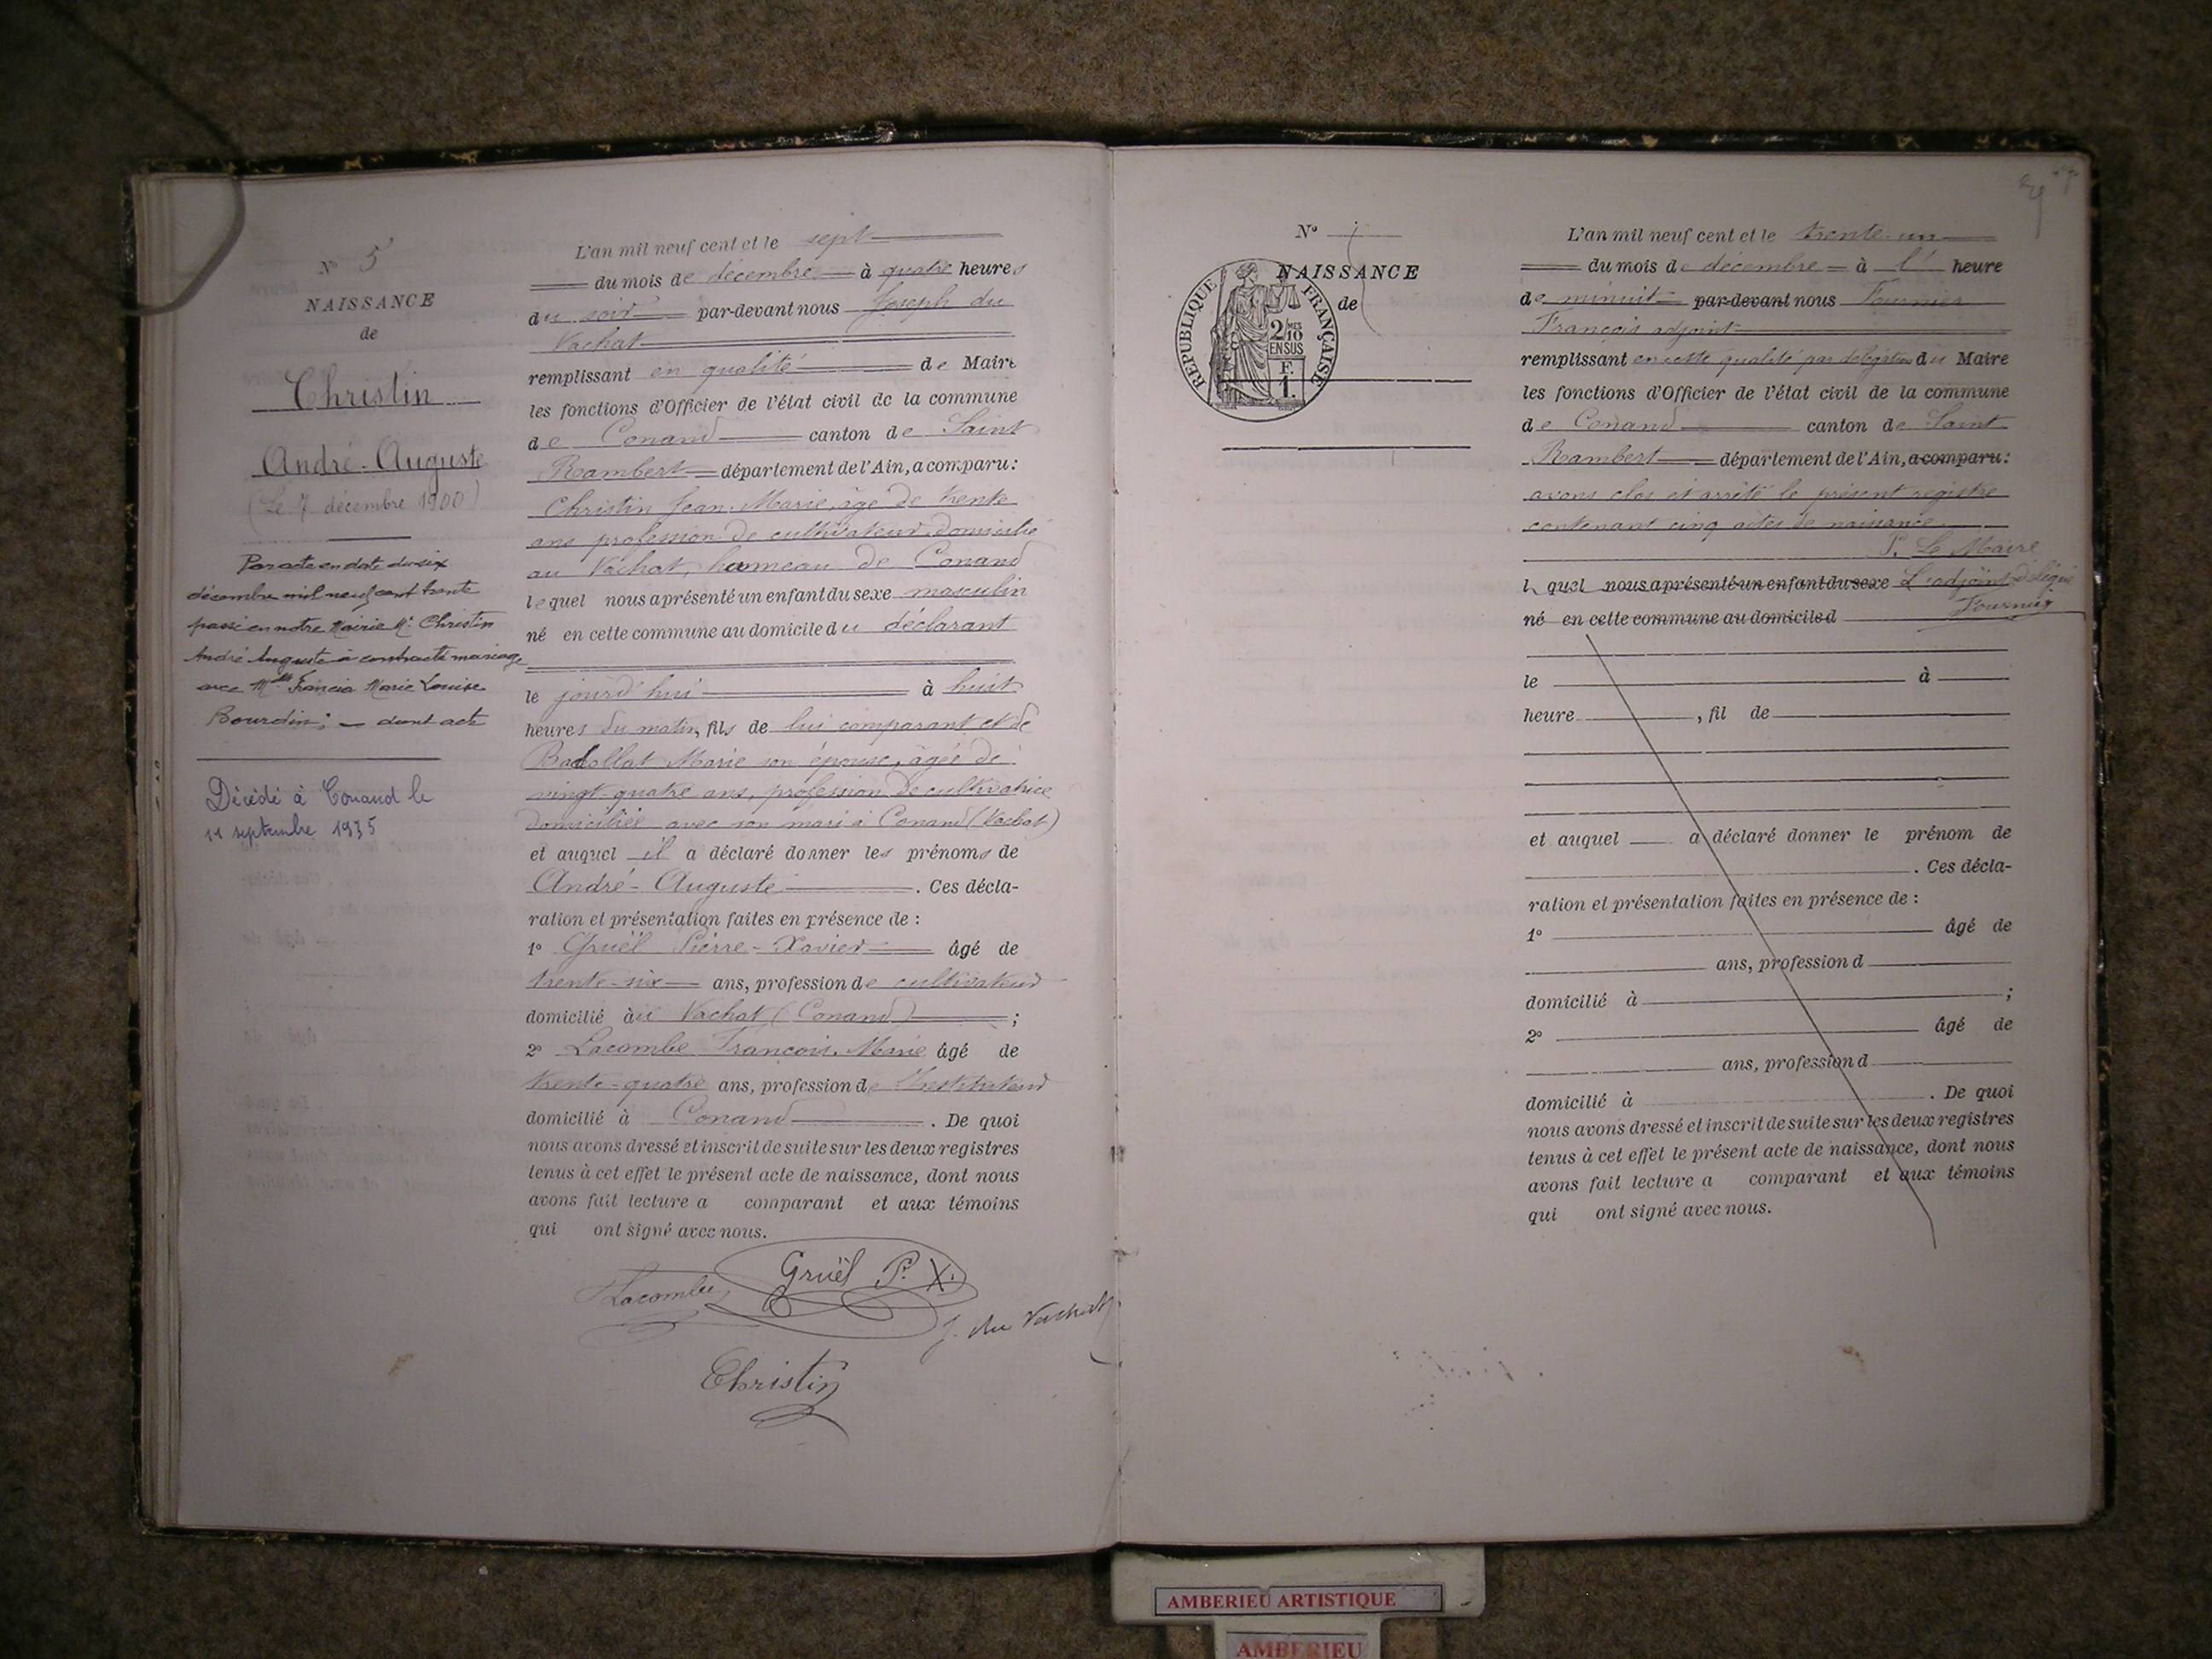 N° 5
NAISSANCE
de
Christin
André-Auguste
(Le 7 décembre 1900)
Par acte en date du six
décembre mil neuf cent trente
passé en notre Mairie Mr Christin
André Auguste a contracté mariage
avec Mlle Francia Marie Louise
Bourdin; - dont acte
Décédé à Conand le
11 septembre 1935
L'an mil neuf cent et le sept
du mois de décembre à quatre heures
du soir par-devant nous Joseph du
Vachat
remplissant en qualité de Maire
les fonctions d'Officier de l'état civil de la commune
de Conand canton de Saint
Rambert département de l'Ain, a comparu :
Christin Jean-Marie, âgé de trente
ans profession de cultivateur domicilié
au Vachat, hameau de Conand
lequel nous a présenté un enfant du sexe masculin
né en cette commune au domicile du déclarant
le jourd'hui à huit
heures du matin, fils de lui comparant et de
Marie son épouse, âgée de
vingt quatre ans, profession de cultivatrice
domiciliée avec son mari à Conand (Vachat)
et auquel il a déclaré donner les prénoms de
André-Auguste. Ces décla-
ration et présentation faites en présence de :
1° Gruël Pierre-Xavier âgé de
trente-six ans, profession de cultivateur
domicilié àu Vachat (Conand) ;
2° Lacombe François-Marie âgé de
trente-quatre ans, profession de Instituteur
domicilié à Conand. De quoi
nous avons dressé et inscrit de suite sur les deux registres
tenus à cet effet le présent acte de naissance, dont nous
avons fait lecture a comparant et aux témoins
qui ont signé avec nous.
Gruël P. X.
Lacombe
J. du Vachat
Christin
N°
NAISSANCE
de
RÉPUBLIQUE FRANÇAISE
2/10 MES
EN SUS
F.
1.
L'an mil neuf cent et le trente-un
du mois de décembre à l' heure
de minuit par-devant nous Fournier
François adjoint
remplissant en cette qualité par délégation du Maire
les fonctions d'Officier de l'état civil de la commune
de Conand canton de Saint
Rambert département de l'Ain, a comparu :
avons clos et arrêté le présent registre
contenant cinq actes de naissance.
P. Le Maire
l quel nous a présenté un enfant du sexe L'adjoint délégué
né en cette commune au domicile d Fournier
le à
heure , fil de
et auquel a déclaré donner le prénom de
. Ces décla-
ration et présentation faites en présence de :
1° âgé de
ans, profession d
domicilié à ;
2° âgé de
ans, profession d
domicilié à . De quoi
nous avons dressé et inscrit de suite sur les deux registres
tenus à cet effet le présent acte de naissance, dont nous
avons fait lecture a comparant et aux témoins
qui ont signé avec nous.
AMBERIEU ARTISTIQUE
AMBERIEU